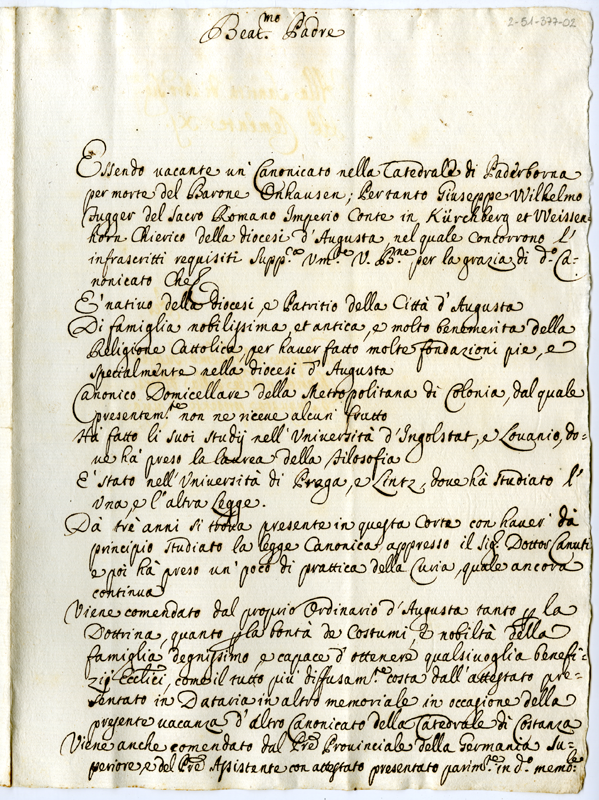 2-51-377-02
Beat.mo Padre
Essendo vacante un' Canonicato nella Catedrale di Paderborna
per morte del Barone Onhausen; Per tanto Giuseppe Wilhelmo
Fugger del Sacro Romano Imperio Conte in Kürchberg et Weissen-
horn Chierico della diocesi d'Augusta, nel quale concorrono l'
infrascritti requisiti Supp.ca Um.te V. B.ne per la grazia di d.o Ca-
nonicato Che
E' nativo della diocesi, e Patritio della Città d'Augusta
Di famiglia nobilissima, et antica, e molto benemerita della
Religione Cattolica, per haver fatto molte fondazioni pie, e
specialmente nella diocesi d'Augusta
Canonico Domicellare della Metropolitana di Colonia, dal quale
presentem.te non ne riceve alcun' frutto
Hà fatto li suoi studij nell'Università d'Ingolstat, e Lovanio, do-
ve hà preso la laurea della Filosofia
E' stato nell'Università di Praga, e Lintz, dove hà studiato l'
una, e l'altra Legge.
Dà trè anni si trova presente in questa Corte con haver' dà
principio studiato la legge Canonica appresso il Sig.r Dottor Canuti
e poi hà preso un' poco di prattica della Curia, quale ancora
continua
Viene comendato dal proprio Ordinario d'Augusta tanto la
Dottrina, quanto la bontà de Costumi, e nobiltà della
famiglia degnissimo e capace d'ottenere qualsivoglia benefi-
zij Ecclici, come il tutto più diffusam.te costa dall'attestato pre-
sentato in Dataria in altro memoriale in occasione della
presente vacanza d'altro Canonicato della Catedrale di Costanza
Viene anche comendato dal Pre Provinciale della Germania Su-
periore e del Pre Assistente con attestato presentato parim.te in d.o memo.le